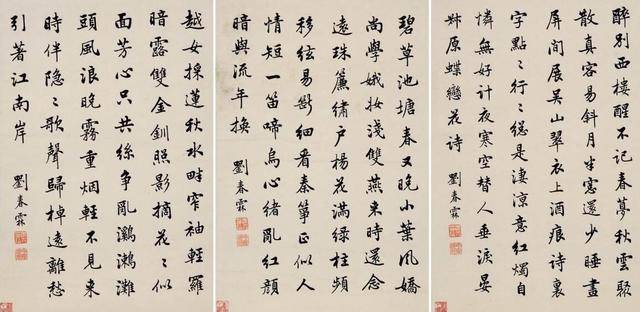 醉別西樓醒不記春夢秋雲聚
散真容易斜月半窗還少睡畫
屏閒展吳山翠衣上酒痕詩裏
字點〻行〻總是淒涼意紅燭自
憐無好計夜寒空替人垂淚晏
叔原蝶戀花詩 劉春霖
碧草池塘春又晚小葉風嬌
尚學娥妝淺雙燕来時還念
遠珠簾繡戶楊花滿綠柱頻
移絃易斷細看秦箏正似人
情短一笛啼烏心緒亂紅顏
暗與流年換 劉春霖
越女採蓮秋水畔窄袖輕羅
暗露雙金釧照影摘花〻似
面芳心只共絲爭亂鸂鶒灘
頭風浪晚霧重烟輕不見来
時伴隐〻歌聲歸棹遠離愁
引著江南岸 劉春霖